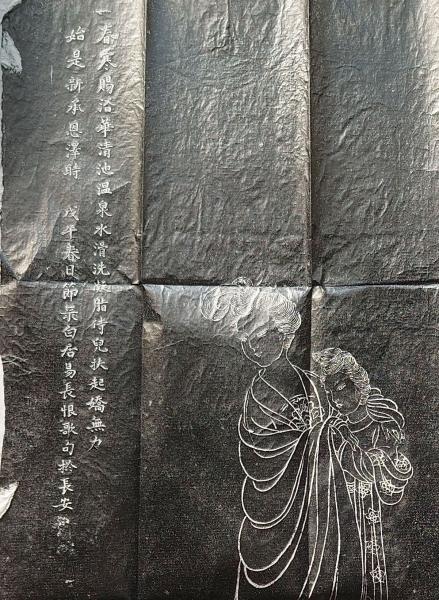 春寒賜浴華清池溫泉水滑洗凝脂侍兒扶起嬌無力
始是新承恩澤時 戊午春日節录白居易長恨歌句於長安